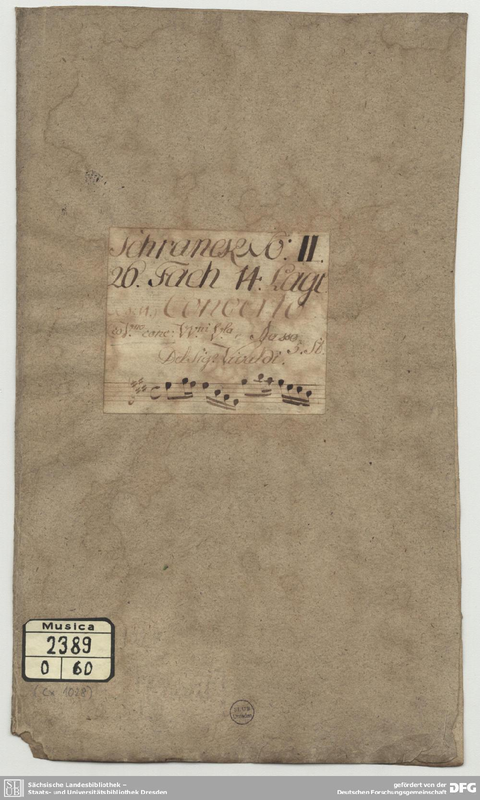 Schranck No: II.
26. Fach 14. Lage
Concerto
co V.no conc: VVni Vla e Basso
5. St.
Del Sigr. Vivaldi.
Musica
2389
O 60
(Cx 1028)
Sächsische Landesbibliothek –
Staats- und Universitätsbibliothek Dresden
gefördert von der
Deutschen Forschungsgemeinschaft
DFG
SLUB